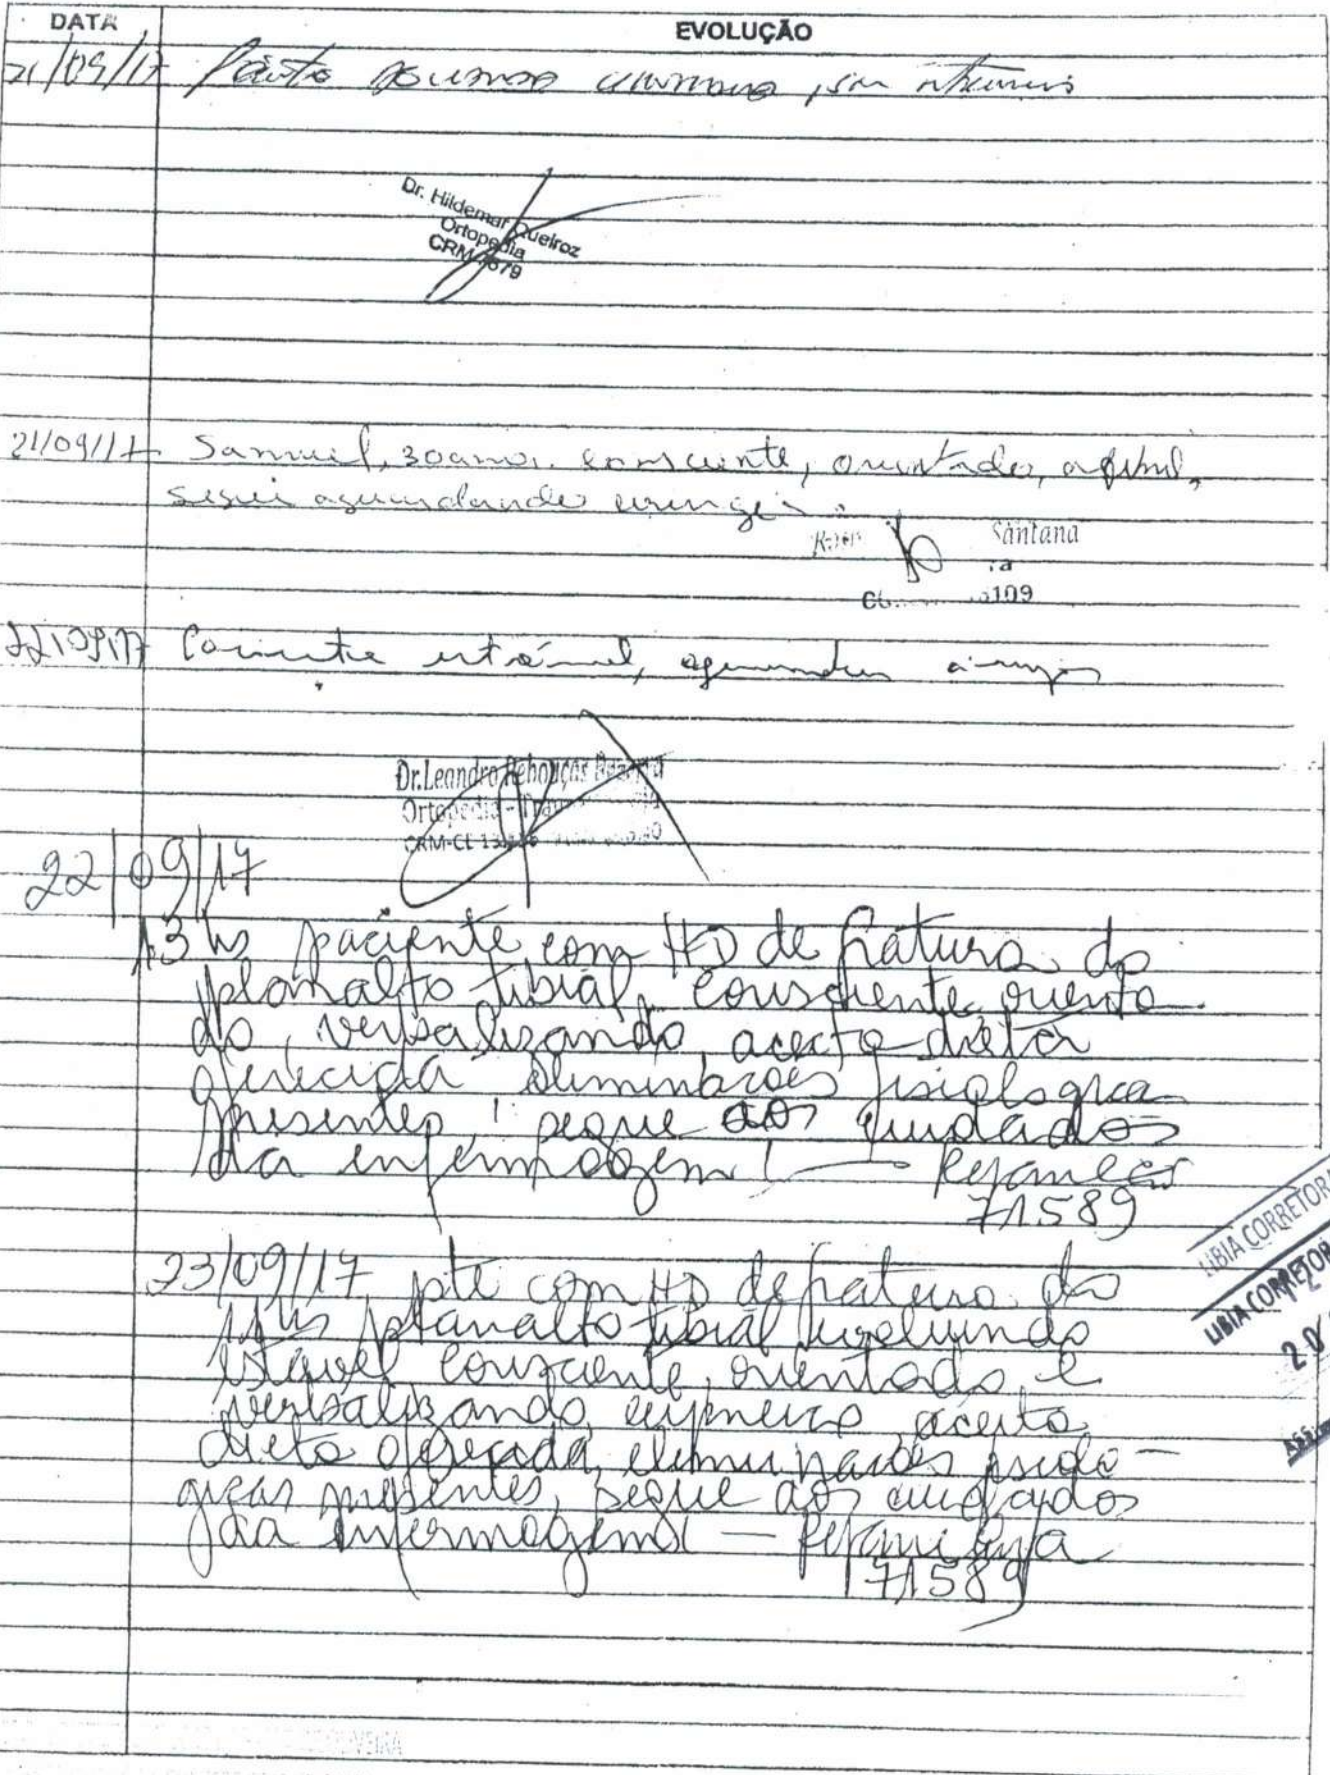 DATA EVOLUÇÃO
21/09/17
Dr. Hildemar Queiroz
Ortopedia
CRM 7679
21/09/17 Samuel, 30 anos. consciente, orientado, afebril,
segue aguardando cirurgia.
Santana
109
22/09/17 Paciente estável, aguardando cirurgia
Dr. Leandro Rebouças
Ortopedia -
CRM-CE
22/09/17
13 hs paciente com HD de fratura do
planalto tibial, consciente, orienta
do, verbalizando, aceita dieta
oferecida eliminações fisiologica
presentes, segue aos cuidados
da enfermagem! —
71589
23/09/17 pte com HD de fratura do
11 hs planalto tibial evoluindo
estável consciente, orientado, e
verbalizando, aceita
dieta oferecida, eliminações fisiolo-
gicas presentes, segue aos cuidados
da enfermagem! —
71589
LIBIA CORRETORA
LIBIA CORRETOR
20